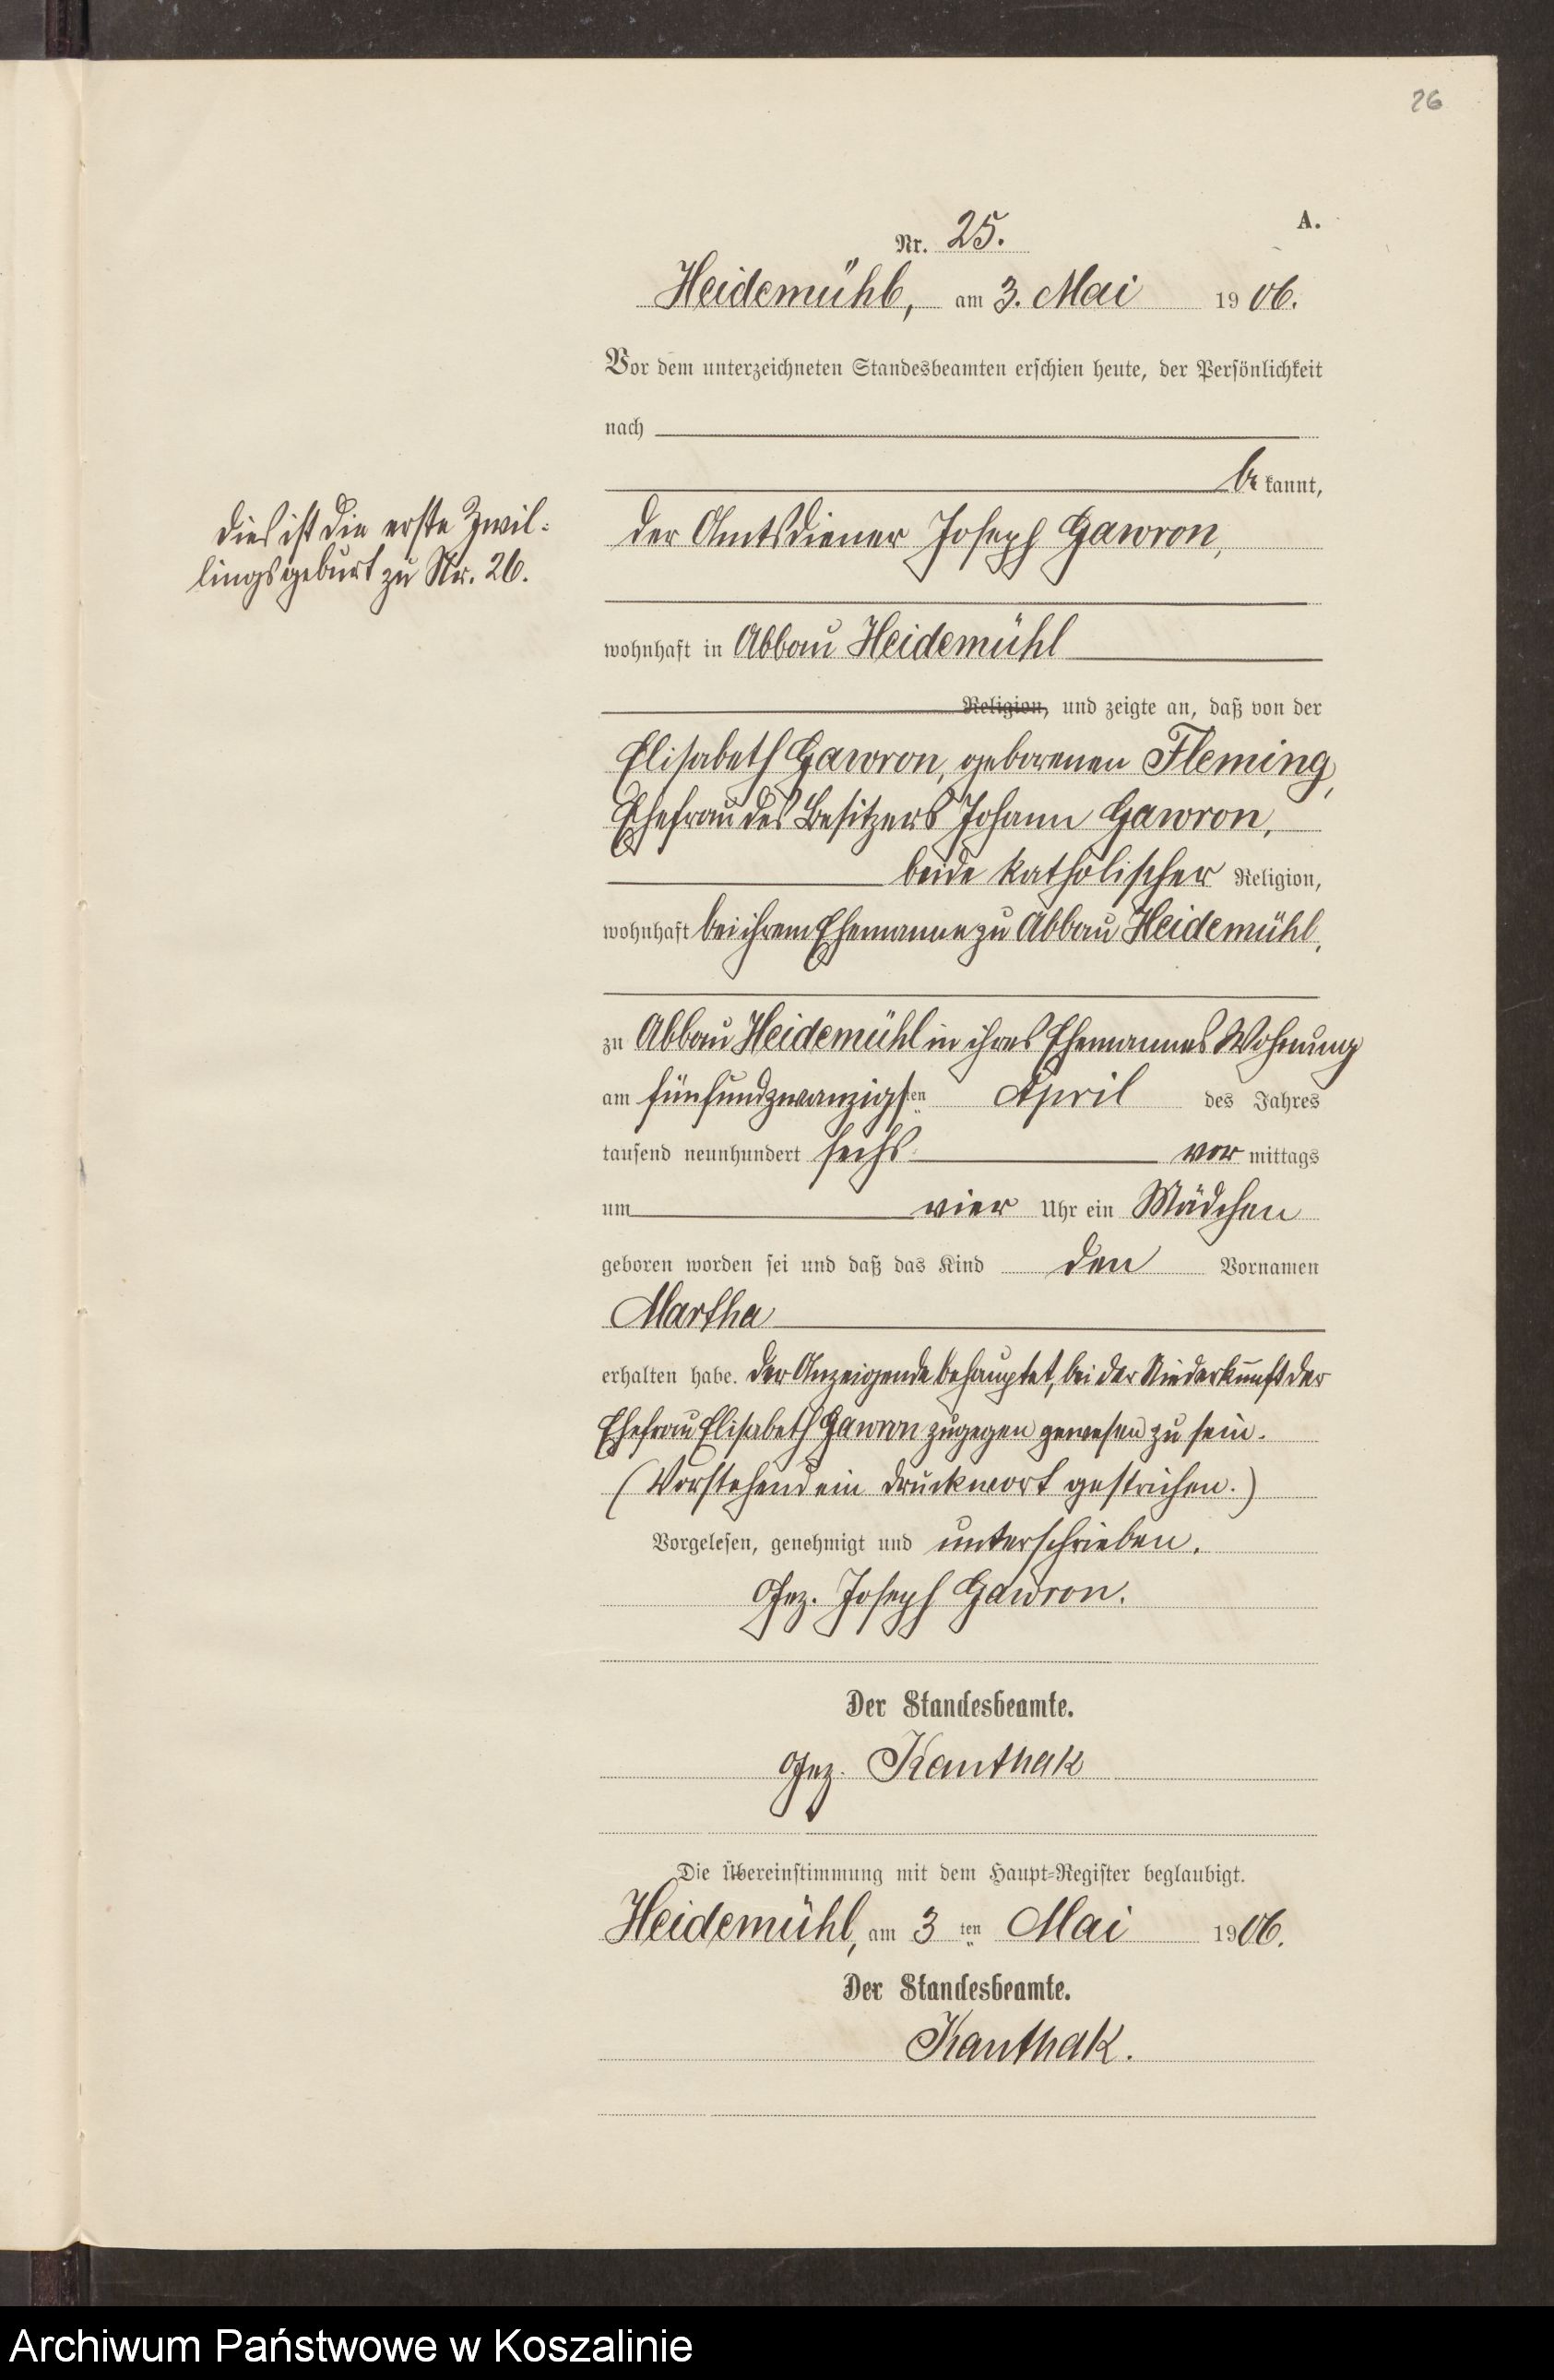 26
A.
Nr. 25.
Heidemühl, am 3. Mai 1906.
Vor dem unterzeichneten Standesbeamten erschien heute, der Persönlichkeit
nach
bekannt,
der Amtsdiener Joseph Gawron,
Dies ist die erste Zwil-
lingsgeburt zu Nr. 26.
wohnhaft in Abbau Heidemühl
Religion, und zeigte an, daß von der
Elisabeth Gawron, geborenen Fleming,
Ehefrau des Besitzers Johann Gawron,
beide katholischer Religion,
wohnhaft bei ihrem Ehemanne zu Abbau Heidemühl,
zu Abbau Heidemühl in ihres Ehemannes Wohnung
am fünfundzwanzigsten April des Jahres
tausend neunhundert sechs vormittags
um vier Uhr ein Mädchen
geboren worden sei und daß das Kind den Vornamen
Martha
erhalten habe. Der Anzeigende behauptet, bei der Niederkunft der
Ehefrau Elisabeth Gawron zugegen gewesen zu sein.
(Vorstehend ein Druckwort gestrichen.)
Vorgelesen, genehmigt und unterschrieben.
Gez. Joseph Gawron.
Der Standesbeamte.
Gez. Kanthak
Die Übereinstimmung mit dem Haupt-Register beglaubigt.
Heidemühl, am 3ten Mai 1906.
Der Standesbeamte.
Kanthak.
Archiwum Państwowe w Koszalinie